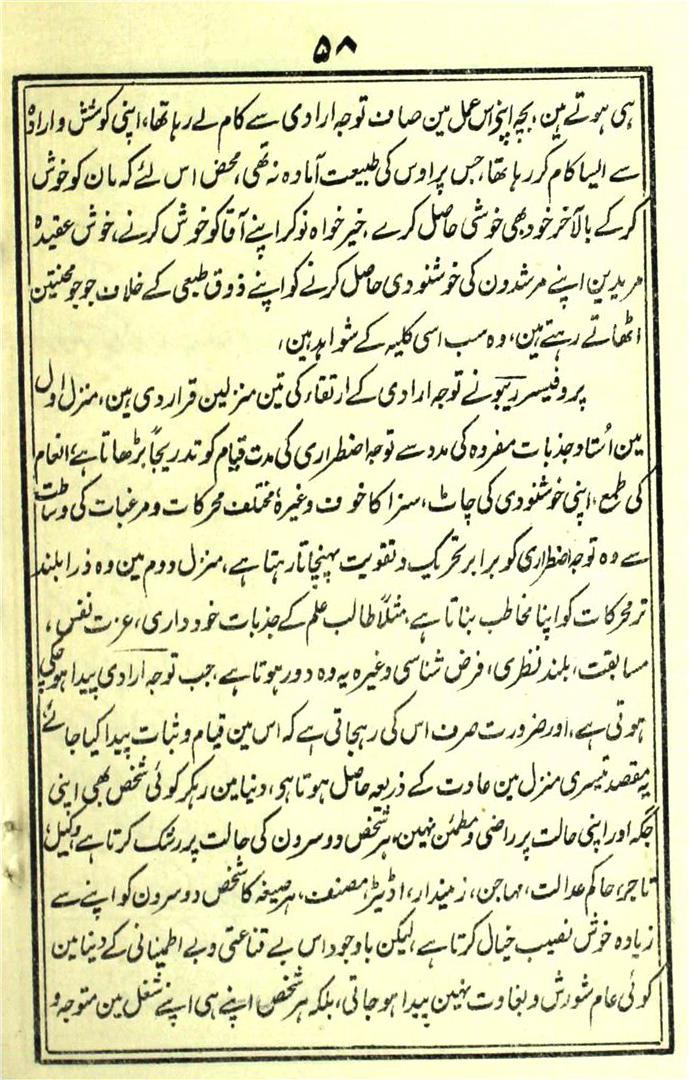 ۵۸
ہی ہوتے ہین، بچہ اپنی اس عمل مین صاف توجہ ارادی سے کام لے رہا تھا، اپنی کوشش و ارادہ
سے ایسا کام کر رہا تھا، جس پر اوس کی طبیعت آمادہ نہ تھی، محض اس لئے کہ مان کو خوش
کرکے بالآخر خود بھی خوشی حاصل کرے، خیر خواہ نوکر اپنے آقا کو خوش کرنے، خوش عقیدہ
مریدین اپنے مرشدون کی خوشنودی حاصل کرنے کو اپنے ذوق طبعی کے خلاف جو جو محنتین
اٹھاتے رہتے ہین، وہ سب اسی کلیہ کے شواہد ہین،
پروفیسر ریبو نے توجہ ارادی کے ارتقاء کی تین منزلین قرار دی ہین، منزل اول
مین اُستاد جذبات مفردہ کی مدد سے توجہ اضطراری کی مدت قیام کو تدریجاً بڑھاتا ہے، انعام
کی طمع، اپنی خوشنودی کی چاٹ، سزا کا خوف وغیرہ مختلف محرکات و مرغبات کی وساطت
سے وہ توجہ اضطراری کو برابر تحریک و تقویت پہنچاتا رہتا ہے، منزل دوم مین وہ ذرا بلند
تر محرکات کو اپنا مخاطب بناتا ہے، مثلاً طالب علم کے جذبات خودداری، عزت نفس،
مسابقت، بلند نظری، فرض شناسی وغیرہ یہ وہ دور ہوتا ہے، جب توجہ ارادی پیدا ہوچکی
ہوتی ہے، اور ضرورت صرف اس کی رہجاتی ہے کہ اس مین قیام و ثبات پیدا کیا جائے،
یہ مقصد تیسری منزل مین عادت کے ذریعہ حاصل ہوتا ہو، دنیا مین رہکر کوئی شخص بھی اپنی
جگہ اور اپنی حالت پر راضی و مطمئن نہین، ہر شخص دوسرون کی حالت پر رشک کرتا ہے، وکیل،
تاجر، حاکم عدالت، مہاجن، زمیندار، اڈیٹر، مصنف، ہر صیغہ کا شخص دوسرون کو اپنے سے
زیادہ خوش نصیب خیال کرتا ہے، لیکن باوجود اس بے قناعتی و بے اطمینانی کے دینا مین
کوئی عام شورش و بغاوت نہین پیدا ہو جاتی، بلکہ ہر شخص اپنے ہی اپنے شغل مین متوجہ و